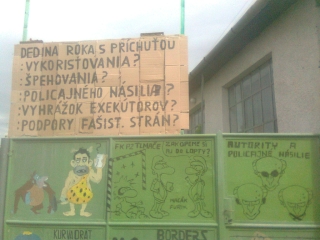 DEDINA ROKA S PRÍCHUŤOU
:VYKORISŤOVANIA?
:ŠPEHOVANIA?
:POLICAJNÉHO NÁSILIA?
:VYHRÁŽOK EXEKÚTOROV?
:PODPORY FAŠIST. STRÁN?
AUTORITY A
POLICAJNÉ NÁSILIE
KURVADRÁT
BORDERS